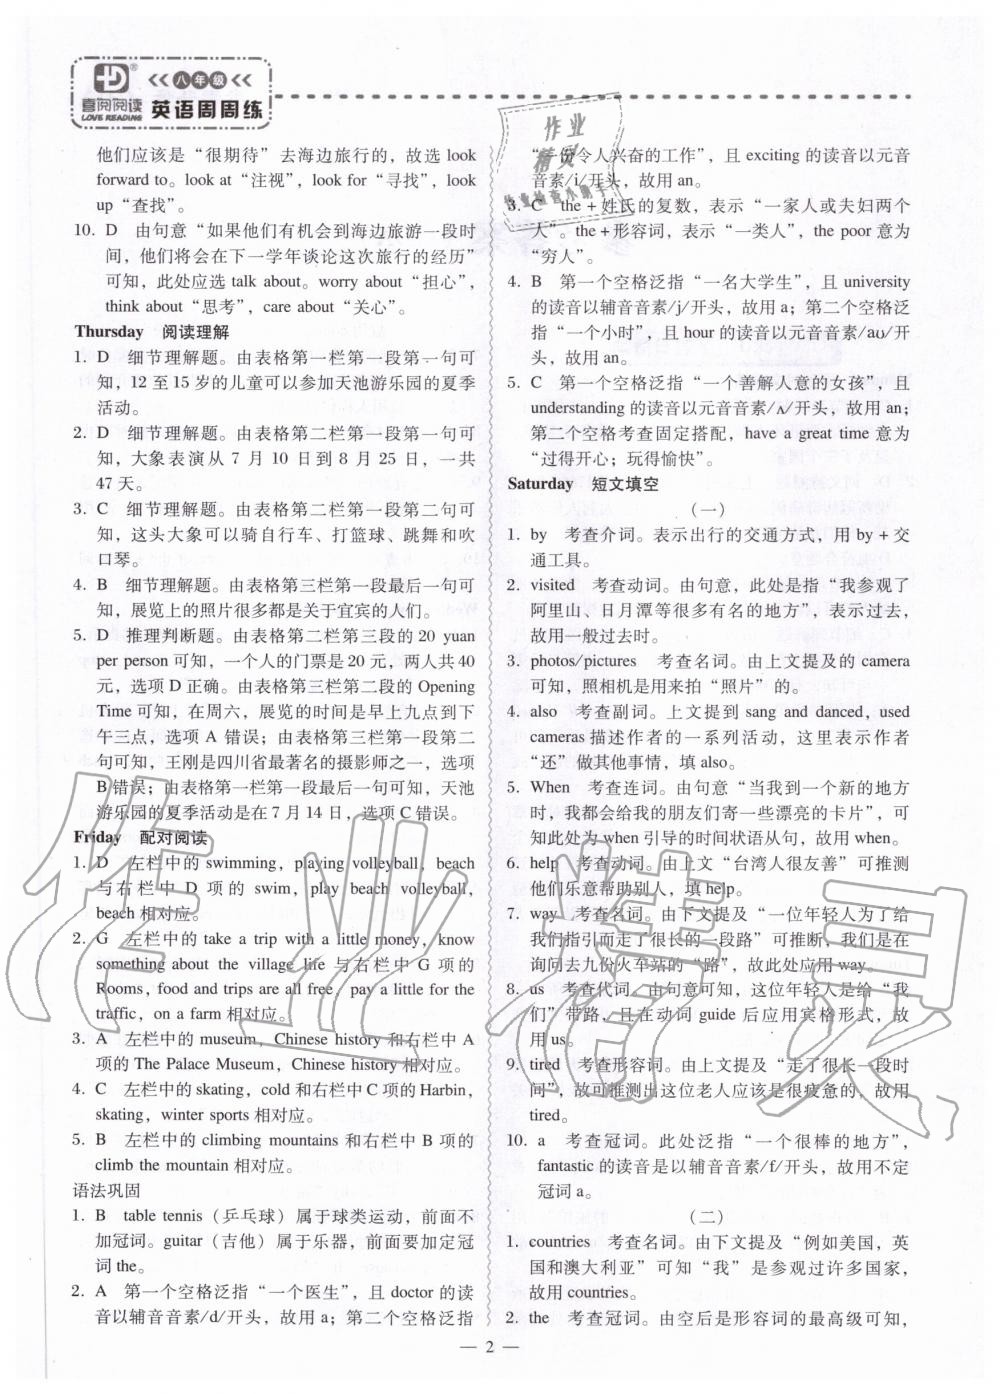 八年级
喜阅阅读
LOVE READING
英语周周练
他们应该是“很期待”去海边旅行的，故选 look
forward to。look at“注视”，look for“寻找”，look
up“查找”。
10. D 由句意“如果他们有机会到海边旅游一段时
间，他们将会在下一学年谈论这次旅行的经历”
可知，此处应选 talk about。worry about“担心”，
think about“思考”，care about“关心”。
Thursday 阅读理解
1. D 细节理解题。由表格第一栏第一段第一句可
知，12 至 15 岁的儿童可以参加天池游乐园的夏季
活动。
2. D 细节理解题。由表格第二栏第一段第一句可
知，大象表演从 7 月 10 日到 8 月 25 日，一共
47 天。
3. C 细节理解题。由表格第二栏第一段第二句可
知，这头大象可以骑自行车、打篮球、跳舞和吹
口琴。
4. B 细节理解题。由表格第三栏第一段最后一句可
知，展览上的照片很多都是关于宜宾的人们。
5. D 推理判断题。由表格第二栏第三段的 20 yuan
per person 可知，一个人的门票是 20 元，两人共 40
元，选项 D 正确。由表格第三栏第二段的 Opening
Time 可知，在周六，展览的时间是早上九点到下
午三点，选项 A 错误；由表格第三栏第一段第二
句可知，王刚是四川省最著名的摄影师之一，选项
B 错误；由表格第一栏第一段最后一句可知，天池
游乐园的夏季活动是在 7 月 14 日，选项 C 错误。
Friday 配对阅读
1. D 左栏中的 swimming，playing volleyball，beach
与右栏中 D 项的 swim，play beach volleyball，
beach 相对应。
2. G 左栏中的 take a trip with a little money，know
something about the village life 与右栏中 G 项的
Rooms，food and trips are all free，pay a little for the
traffic，on a farm 相对应。
3. A 左栏中的 museum，Chinese history 和右栏中 A
项的 The Palace Museum，Chinese history 相对应。
4. C 左栏中的 skating，cold 和右栏中 C 项的 Harbin，
skating，winter sports 相对应。
5. B 左栏中的 climbing mountains 和右栏中 B 项的
climb the mountain 相对应。
语法巩固
1. B table tennis（乒乓球）属于球类运动，前面不
加冠词。guitar（吉他）属于乐器，前面要加定冠
词 the。
2. A 第一个空格泛指“一个医生”，且 doctor 的读
音以辅音音素/d/开头，故用 a；第二个空格泛指
“一份令人兴奋的工作”，且 exciting 的读音以元音
音素/i/开头，故用 an。
3. C the＋姓氏的复数，表示“一家人或夫妇两个
人”。the＋形容词，表示“一类人”，the poor 意为
“穷人”。
4. B 第一个空格泛指“一名大学生”，且 university
的读音以辅音音素/j/开头，故用 a；第二个空格泛
指“一个小时”，且 hour 的读音以元音音素/aʊ/开
头，故用 an。
5. C 第一个空格泛指“一个善解人意的女孩”，且
understanding 的读音以元音音素/ʌ/开头，故用 an；
第二个空格考查固定搭配，have a great time 意为
“过得开心；玩得愉快”。
Saturday 短文填空
（一）
1. by 考查介词。表示出行的交通方式，用 by＋交
通工具。
2. visited 考查动词。由句意，此处是指“我参观了
阿里山、日月潭等很多有名的地方”，表示过去，
故用一般过去时。
3. photos/pictures 考查名词。由上文提及的 camera
可知，照相机是用来拍“照片”的。
4. also 考查副词。上文提到 sang and danced，used
cameras 描述作者的一系列活动，这里表示作者
“还”做其他事情，填 also。
5. When 考查连词。由句意“当我到一个新的地方
时，我都会给我的朋友们寄一些漂亮的卡片”，可
知此处为 when 引导的时间状语从句，故用 when。
6. help 考查动词。由上文“台湾人很友善”可推测
他们乐意帮助别人，填 help。
7. way 考查名词。由下文提及“一位年轻人为了给
我们指引而走了很长的一段路”可推断，我们是在
询问去九份火车站的“路”，故此处应用 way。
8. us 考查代词。由句意可知，这位年轻人是给“我
们”带路，且在动词 guide 后应用宾格形式，故
用 us。
9. tired 考查形容词。由上文提及“走了很长一段时
间”，故可推测出这位老人应该是很疲惫的，故用
tired。
10. a 考查冠词。此处泛指“一个很棒的地方”，
fantastic 的读音是以辅音音素/f/开头，故用不定
冠词 a。
（二）
1. countries 考查名词。由下文提及“例如美国，英
国和澳大利亚”可知“我”是参观过许多国家，
故用 countries。
2. the 考查冠词。由空后是形容词的最高级可知，
— 2 —
作业
精灵
作业检查小助手
作业精灵